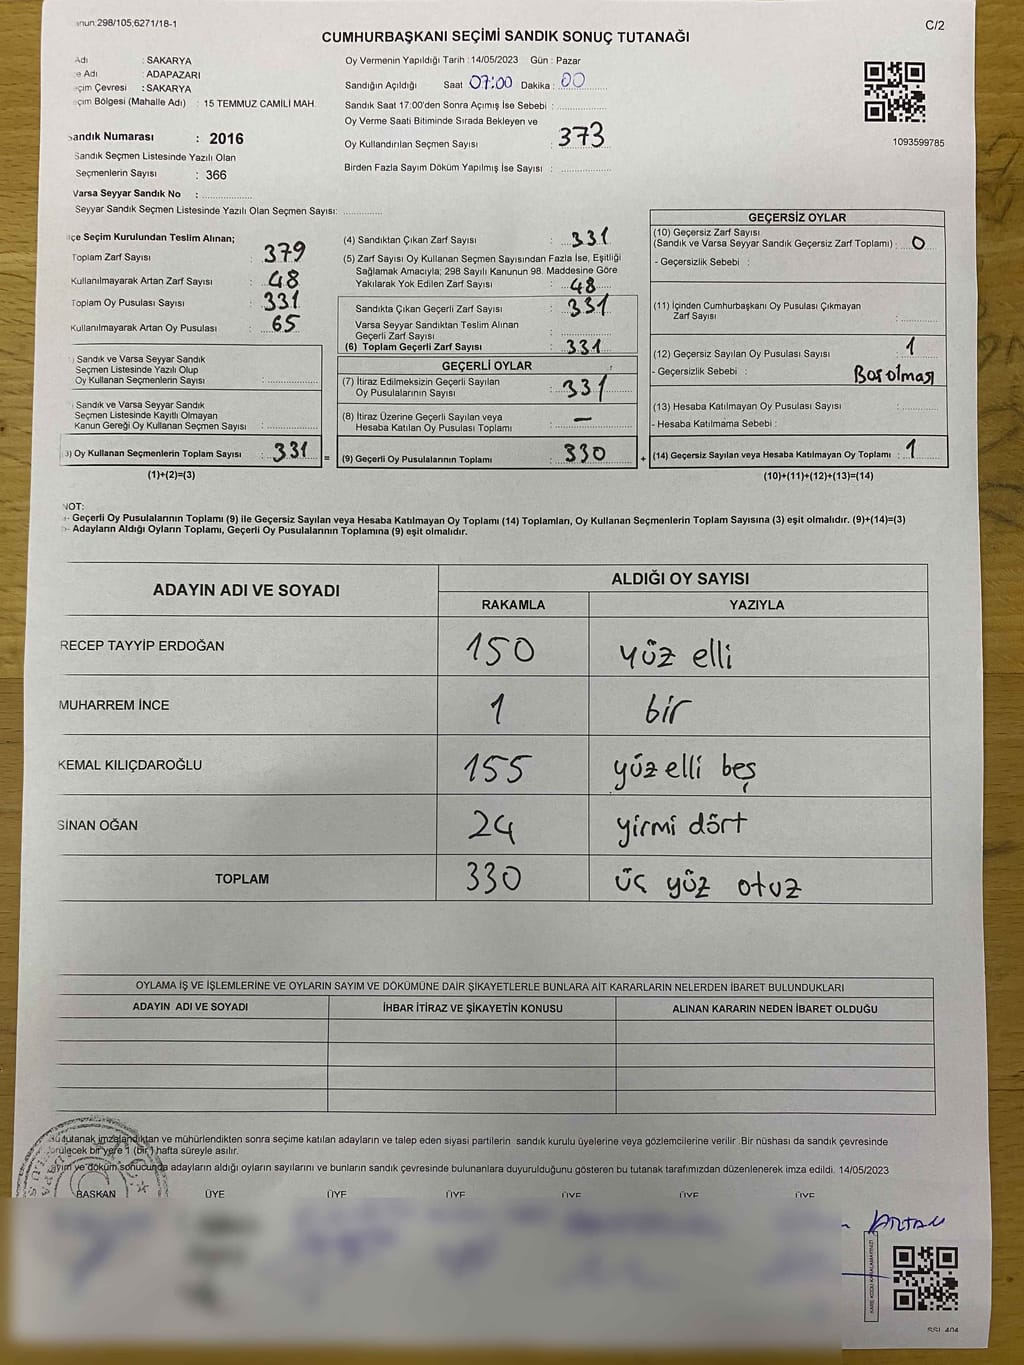 anun:298/105;6271/18-1
C/2
CUMHURBAŞKANI SEÇİMİ SANDIK SONUÇ TUTANAĞI
Adı : SAKARYA
çe Adı : ADAPAZARI
eçim Çevresi : SAKARYA
eçim Bölgesi (Mahalle Adı) : 15 TEMMUZ CAMİLİ MAH.
Sandık Numarası : 2016
Sandık Seçmen Listesinde Yazılı Olan
Seçmenlerin Sayısı : 366
Varsa Seyyar Sandık No :
Seyyar Sandık Seçmen Listesinde Yazılı Olan Seçmen Sayısı:
Oy Vermenin Yapıldığı Tarih : 14/05/2023 Gün : Pazar
Sandığın Açıldığı Saat 07:00 Dakika : 00
Sandık Saat 17:00'den Sonra Açımış İse Sebebi :
Oy Verme Saati Bitiminde Sırada Bekleyen ve
Oy Kullandırılan Seçmen Sayısı : 373
Birden Fazla Sayım Döküm Yapılmış İse Sayısı :
1093599785
lçe Seçim Kurulundan Teslim Alınan;
Toplam Zarf Sayısı : 379
Kullanılmayarak Artan Zarf Sayısı : 48
Toplam Oy Pusulası Sayısı : 331
Kullanılmayarak Artan Oy Pusulası : 65
) Sandık ve Varsa Seyyar Sandık
Seçmen Listesinde Yazılı Olup
Oy Kullanan Seçmenlerin Sayısı :
) Sandık ve Varsa Seyyar Sandık
Seçmen Listesinde Kayıtlı Olmayan
Kanun Gereği Oy Kullanan Seçmen Sayısı :
3) Oy Kullanan Seçmenlerin Toplam Sayısı : 331 =
(1)+(2)=(3)
(4) Sandıktan Çıkan Zarf Sayısı : 331
(5) Zarf Sayısı Oy Kullanan Seçmen Sayısından Fazla İse, Eşitliği
Sağlamak Amacıyla; 298 Sayılı Kanunun 98. Maddesine Göre
Yakılarak Yok Edilen Zarf Sayısı : 48
Sandıkta Çıkan Geçerli Zarf Sayısı : 331
Varsa Seyyar Sandıktan Teslim Alınan
Geçerli Zarf Sayısı :
(6) Toplam Geçerli Zarf Sayısı : 331
GEÇERLİ OYLAR
(7) İtiraz Edilmeksizin Geçerli Sayılan
Oy Pusulalarının Sayısı : 331
(8) İtiraz Üzerine Geçerli Sayılan veya
Hesaba Katılan Oy Pusulası Toplamı : —
(9) Geçerli Oy Pusulalarının Toplamı : 330 +
GEÇERSİZ OYLAR
(10) Geçersiz Zarf Sayısı
(Sandık ve Varsa Seyyar Sandık Geçersiz Zarf Toplamı) : 0
- Geçersizlik Sebebi :
(11) İçinden Cumhurbaşkanı Oy Pusulası Çıkmayan
Zarf Sayısı :
(12) Geçersiz Sayılan Oy Pusulası Sayısı : 1
- Geçersizlik Sebebi : Boş olması
(13) Hesaba Katılmayan Oy Pusulası Sayısı :
- Hesaba Katılmama Sebebi :
(14) Geçersiz Sayılan veya Hesaba Katılmayan Oy Toplamı : 1
(10)+(11)+(12)+(13)=(14)
NOT:
a- Geçerli Oy Pusulalarının Toplamı (9) ile Geçersiz Sayılan veya Hesaba Katılmayan Oy Toplamı (14) Toplamları, Oy Kullanan Seçmenlerin Toplam Sayısına (3) eşit olmalıdır. (9)+(14)=(3)
b- Adayların Aldığı Oyların Toplamı, Geçerli Oy Pusulalarının Toplamına (9) eşit olmalıdır.
ADAYIN ADI VE SOYADI
ALDIĞI OY SAYISI
RAKAMLA YAZIYLA
RECEP TAYYİP ERDOĞAN 150 yüz elli
MUHARREM İNCE 1 bir
KEMAL KILIÇDAROĞLU 155 yüz elli beş
SİNAN OĞAN 24 yirmi dört
TOPLAM 330 üç yüz otuz
OYLAMA İŞ VE İŞLEMLERİNE VE OYLARIN SAYIM VE DÖKÜMÜNE DAİR ŞİKAYETLERLE BUNLARA AİT KARARLARIN NELERDEN İBARET BULUNDUKLARI
ADAYIN ADI VE SOYADI İHBAR İTİRAZ VE ŞİKAYETİN KONUSU ALINAN KARARIN NEDEN İBARET OLDUĞU
Bu tutanak imzalandıktan ve mühürlendikten sonra seçime katılan adayların ve talep eden siyasi partilerin sandık kurulu üyelerine veya gözlemcilerine verilir .Bir nüshası da sandık çevresinde
görülecek bir yere 1 (bir) hafta süreyle asılır.
Sayım ve döküm sonucunda adayların aldığı oyların sayılarını ve bunların sandık çevresinde bulunanlara duyurulduğunu gösteren bu tutanak tarafımızdan düzenlenerek imza edildi. 14/05/2023
BAŞKAN ÜYE ÜYE ÜYE ÜYE ÜYE ÜYE
KARE KODU KARALAMAYINIZ!